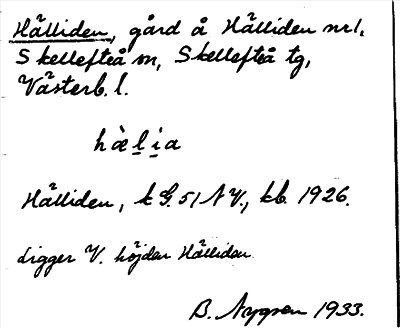 Hälliden, gård å Hälliden nr 1,
Skellefteå sn, Skellefteå tg,
Västerb. l.
hὰlia
Hälliden, k G. 51 NV., kb. 1926.
Ligger V. höjden Hälliden
B. Nygren 1933.